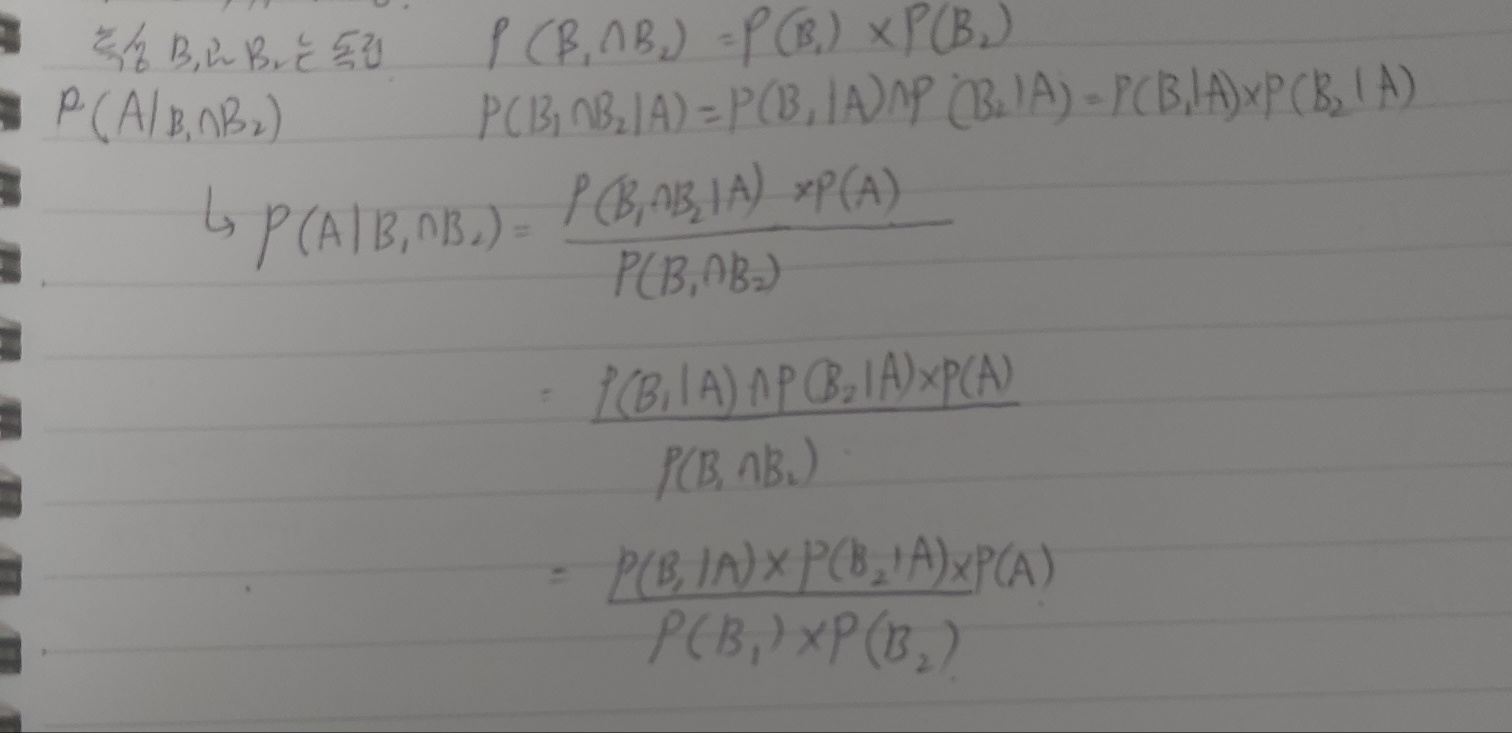 특성 B₁과 B₂는 독립 P(B₁∩B₂) = P(B₁) × P(B₂)
P(A|B₁∩B₂) P(B₁∩B₂|A) = P(B₁|A)∩P(B₂|A) = P(B₁|A)×P(B₂|A)
↳ P(A|B₁∩B₂) = P(B₁∩B₂|A) ×P(A)
P(B₁∩B₂)
= P(B₁|A)∩P(B₂|A)×P(A)
P(B₁∩B₂)
= P(B₁|A)×P(B₂|A)×P(A)
P(B₁)×P(B₂)